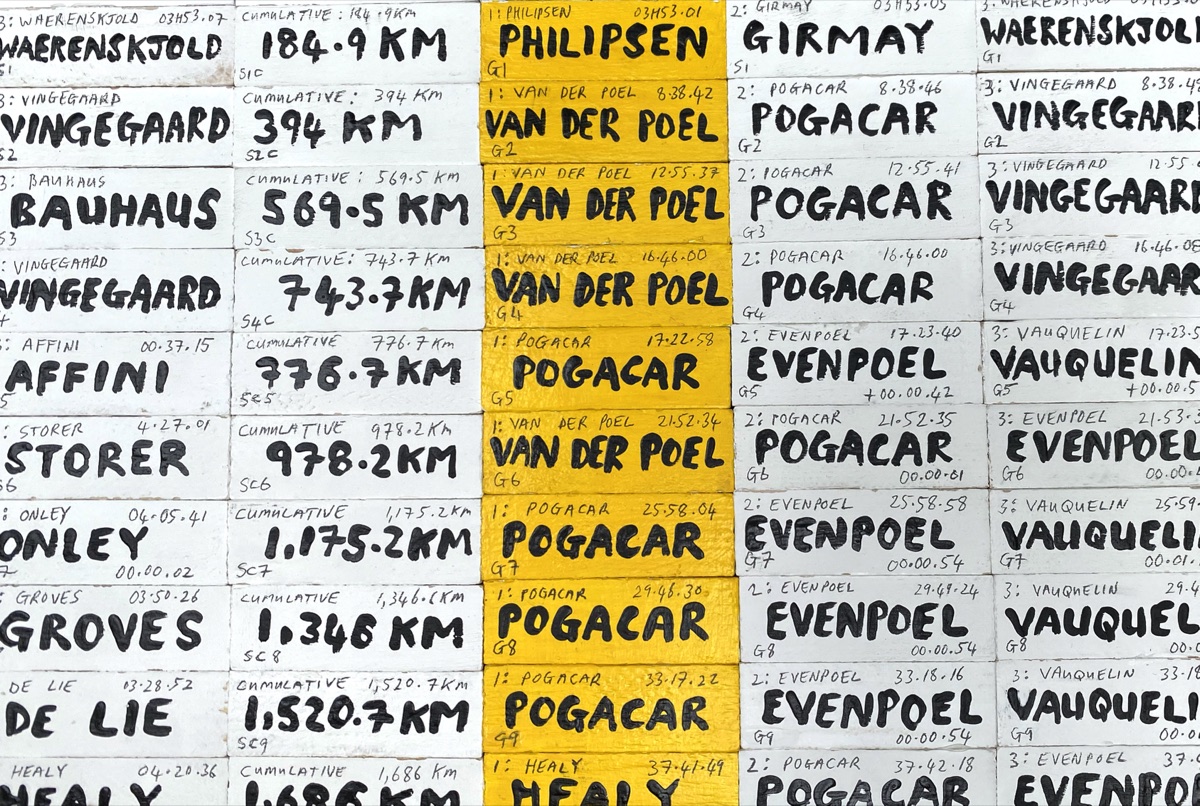 3: WAERENSKJOLD 03H53.07
WAERENSKJOLD
S1
CUMULATIVE: 184.9KM
184.9 KM
S1C
1: PHILIPSEN 03H53.01
PHILIPSEN
G1
2: GIRMAY 03H53.05
GIRMAY
S1
3: WAERENSKJOLD
WAERENSKJOL
G1
3: VINGEGAARD
VINGEGAARD
S2
CUMULATIVE: 394 KM
394 KM
S2C
1: VAN DER POEL 8.38.42
VAN DER POEL
G2
2: POGACAR 8.38.46
POGACAR
G2
3: VINGEGAARD 8.38.4
VINGEGAARD
G2
3: BAUHAUS
BAUHAUS
S3
CUMULATIVE: 569.5 KM
569.5 KM
S3C
1: VAN DER POEL 12.55.37
VAN DER POEL
G3
2: POGACAR 12.55.41
POGACAR
G3
3: VINGEGAARD 12.55
VINGEGAARD
G3
: VINGEGAARD
VINGEGAARD
CUMULATIVE: 743.7 KM
743.7KM
S4C
1: VAN DER POEL 16.46.00
VAN DER POEL
G4
2: POGACAR 16.46.00
POGACAR
G4
3: VINGEGAARD 16.46.0
VINGEGAAR
G4
: AFFINI 00.37.15
AFFINI
5
CUMULATIVE 776.7Km
776.7KM
SC5
1: POGACAR 17.22.58
POGACAR
G5
2: EVENPOEL 17.23.40
EVENPOEL
G5 +00.00.42
3: VAUQUELIN 17.23.5
VAUQUELIN
G5 +00.00.5
: STORER 4.27.01
STORER
S6
CUMULATIVE 978.2Km
978.2KM
SC6
1: VAN DER POEL 21.52.34
VAN DER POEL
G6
2: POGACAR 21.52.35
POGACAR
G6 00.00.01
3: EVENPOEL 21.53.
EVENPOEL
G6 00.00.
: ONLEY 04.05.41
ONLEY
7 00.00.02
CUMULATIVE 1,175.2Km
1,175.2KM
SC7
1: POGACAR 25.58.04
POGACAR
G7
2: EVENPOEL 25.58.58
EVENPOEL
G7 00.00.54
3: VAUQUELIN 25.59
VAUQUELI
G7 00.01.
: GROVES 03.50.26
GROVES
CUMULATIVE 1,346.6KM
1,346 KM
SC8
1: POGACAR 29.48.30
POGACAR
G8
2: EVENPOEL 29.49.24
EVENPOEL
G8 00.00.54
3: VAUQUELIN 29.4
VAUQUEL
G8 00.0
DE LIE 03.28.52
DE LIE
CUMULATIVE 1,520.7KM
1,520.7KM
SC9
1: POGACAR 33.17.22
POGACAR
G9
2: EVENPOEL 33.18.16
EVENPOEL
G9 00.00.54
3: VAUQUELIN 33.1
VAUQUELI
G9 00.0
HEALY 04.20.36
HEALY
CUMULATIVE 1,686 Km
1,686 KM
1: HEALY 37.41.49
HEALY
2: POGACAR 37.42.18
POGACAR
3: EVENPOEL 37.
EVENPO